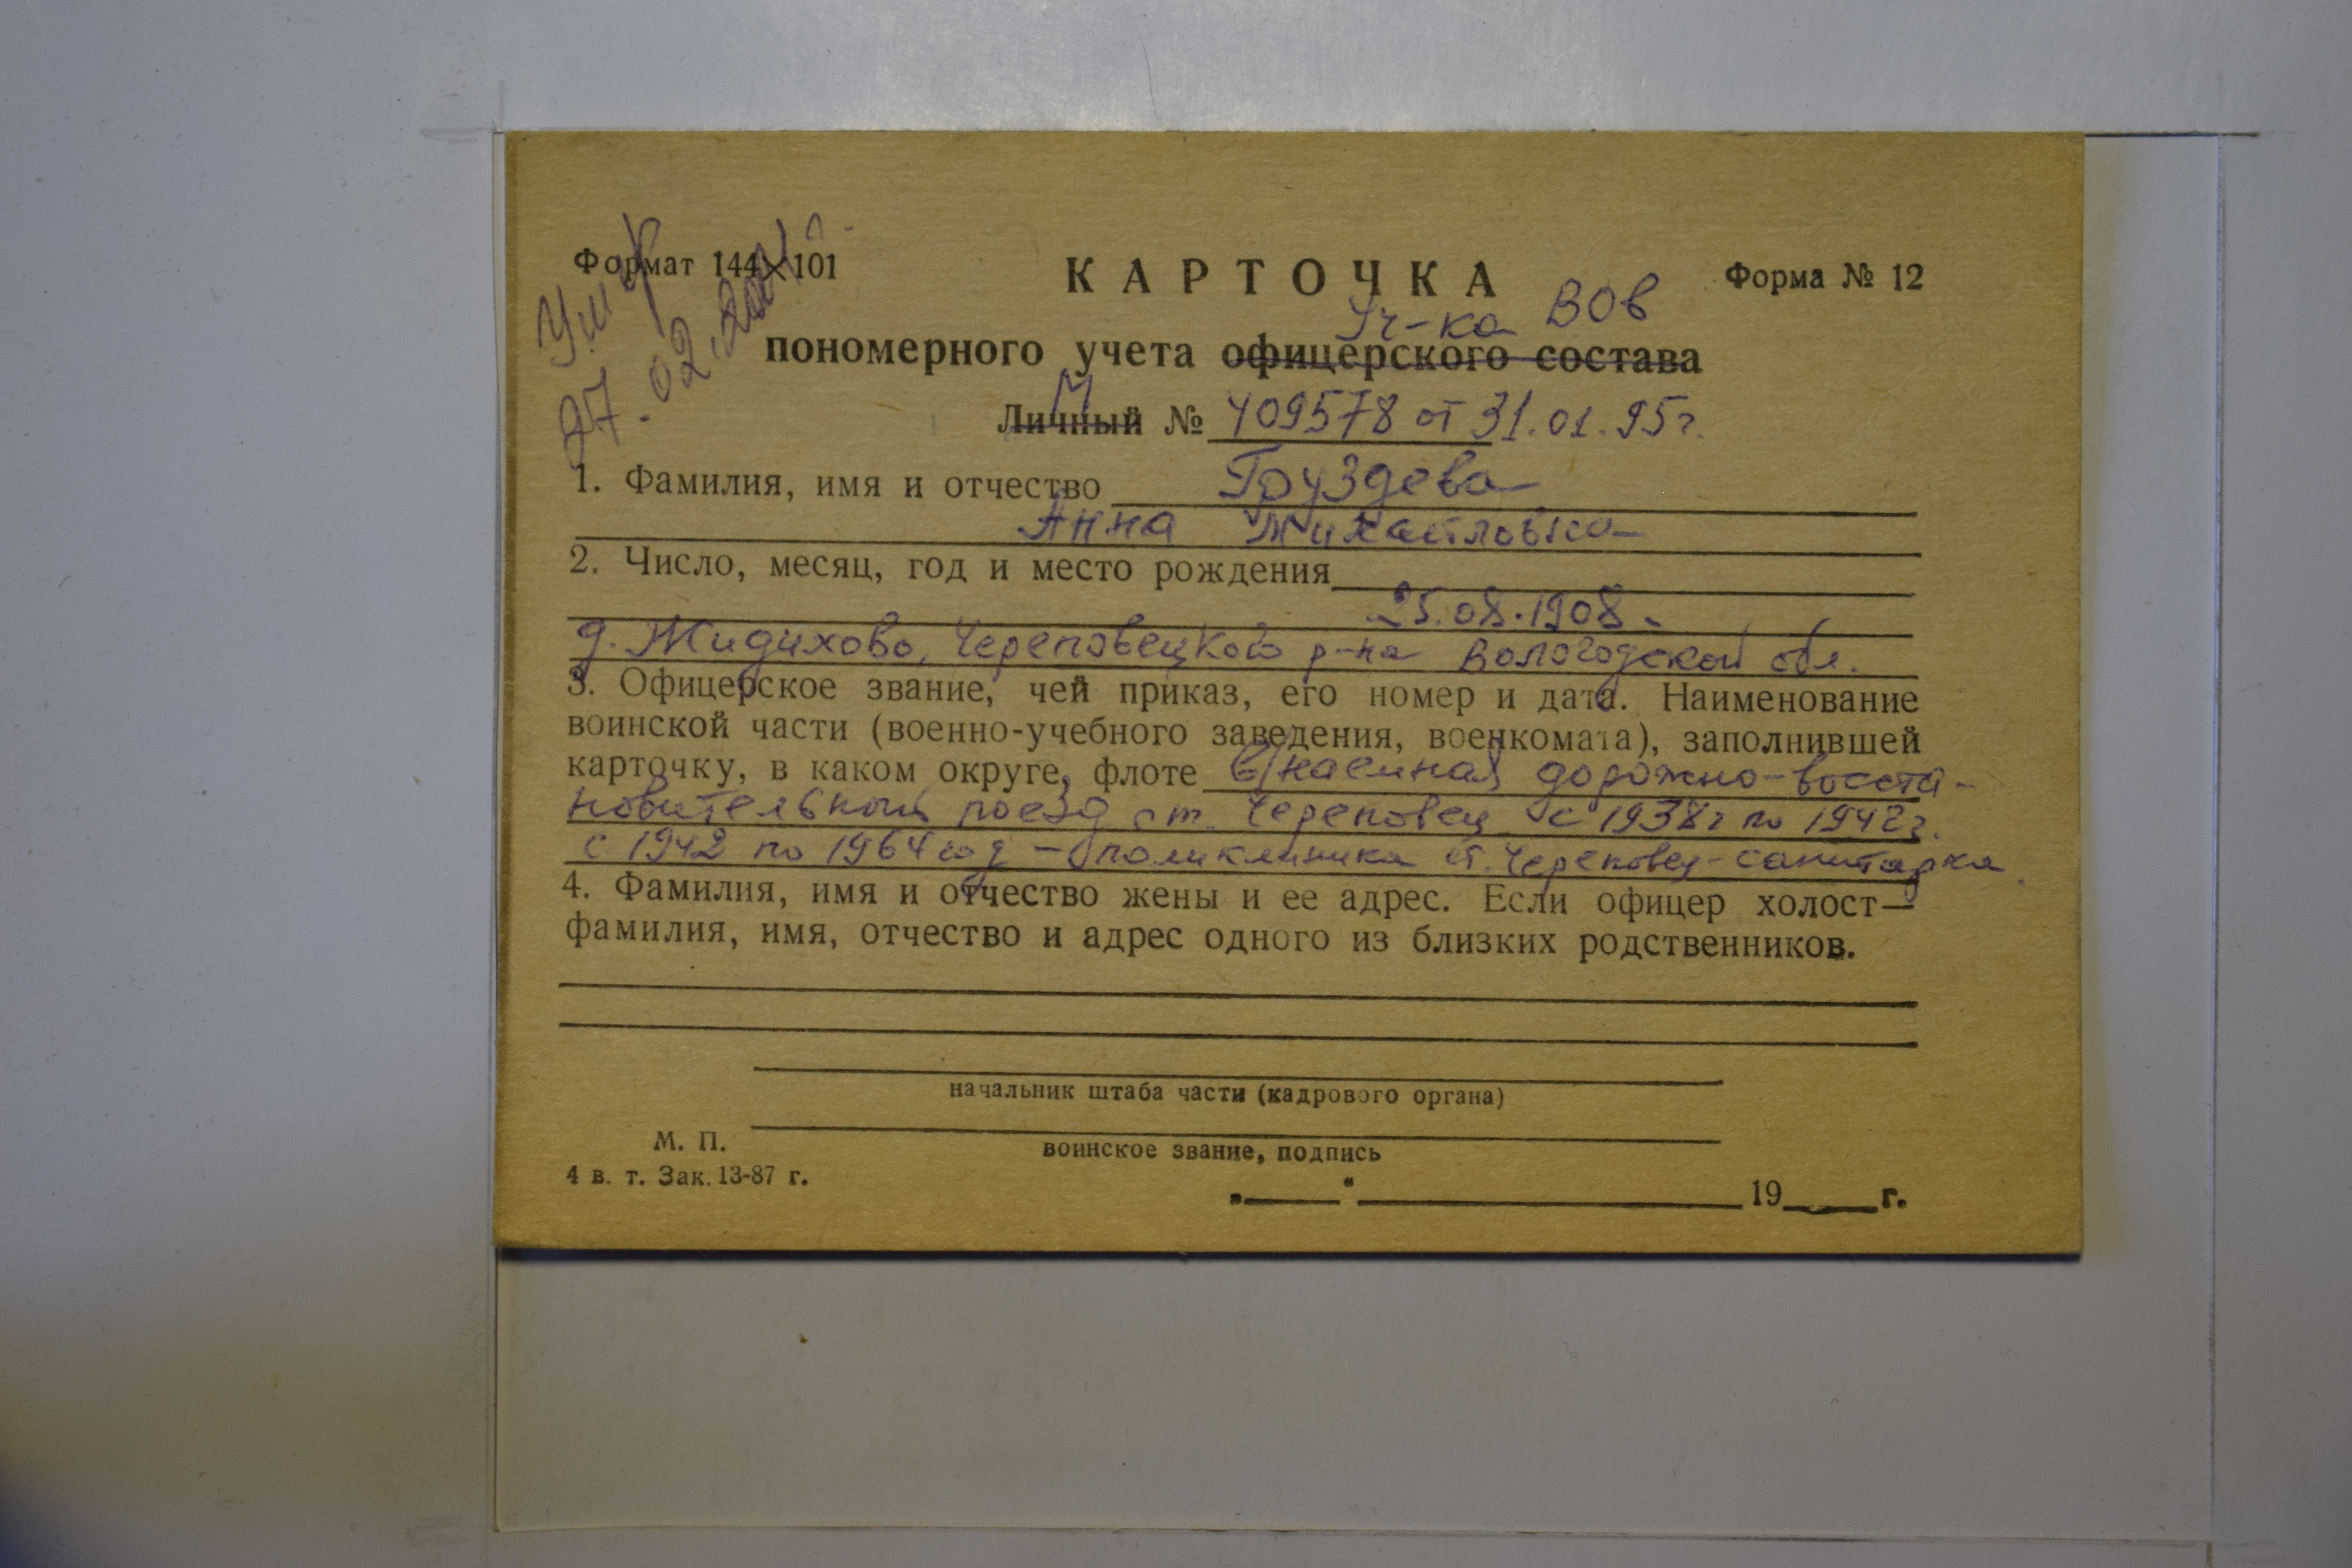 Формат 144×101
КАРТОЧКА
Форма № 12
Умер
27.02.2001 г.
Уч-ка ВОв
пономерного учета офицерского состава
М
Личный № 409578 от 31.01.95г.
1. Фамилия, имя и отчество Груздева
Анна Михайловна
2. Число, месяц, год и место рождения
25.08.1908
д. Жидихово, Череповецкого р-на Вологодской обл.
3. Офицерское звание, чей приказ, его номер и дата. Наименование
воинской части (военно-учебного заведения, военкомата), заполнившей
карточку, в каком округе, флоте в/наемная дорожно-восста-
новительный поезд ст. Череповец с 1938г по 1942г.
с 1942 по 1964 год - поликлиника ст. Череповец - санитарка.
4. Фамилия, имя и отчество жены и ее адрес. Если офицер холост—
фамилия, имя, отчество и адрес одного из близких родственников.
начальник штаба части (кадрового органа)
М. П.
воинское звание, подпись
4 в. т. Зак. 13-87 г.
„ “ 19 г.